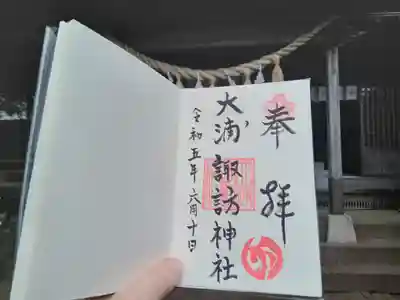 奉拝
大浦諏訪神社
令和五年六月十日